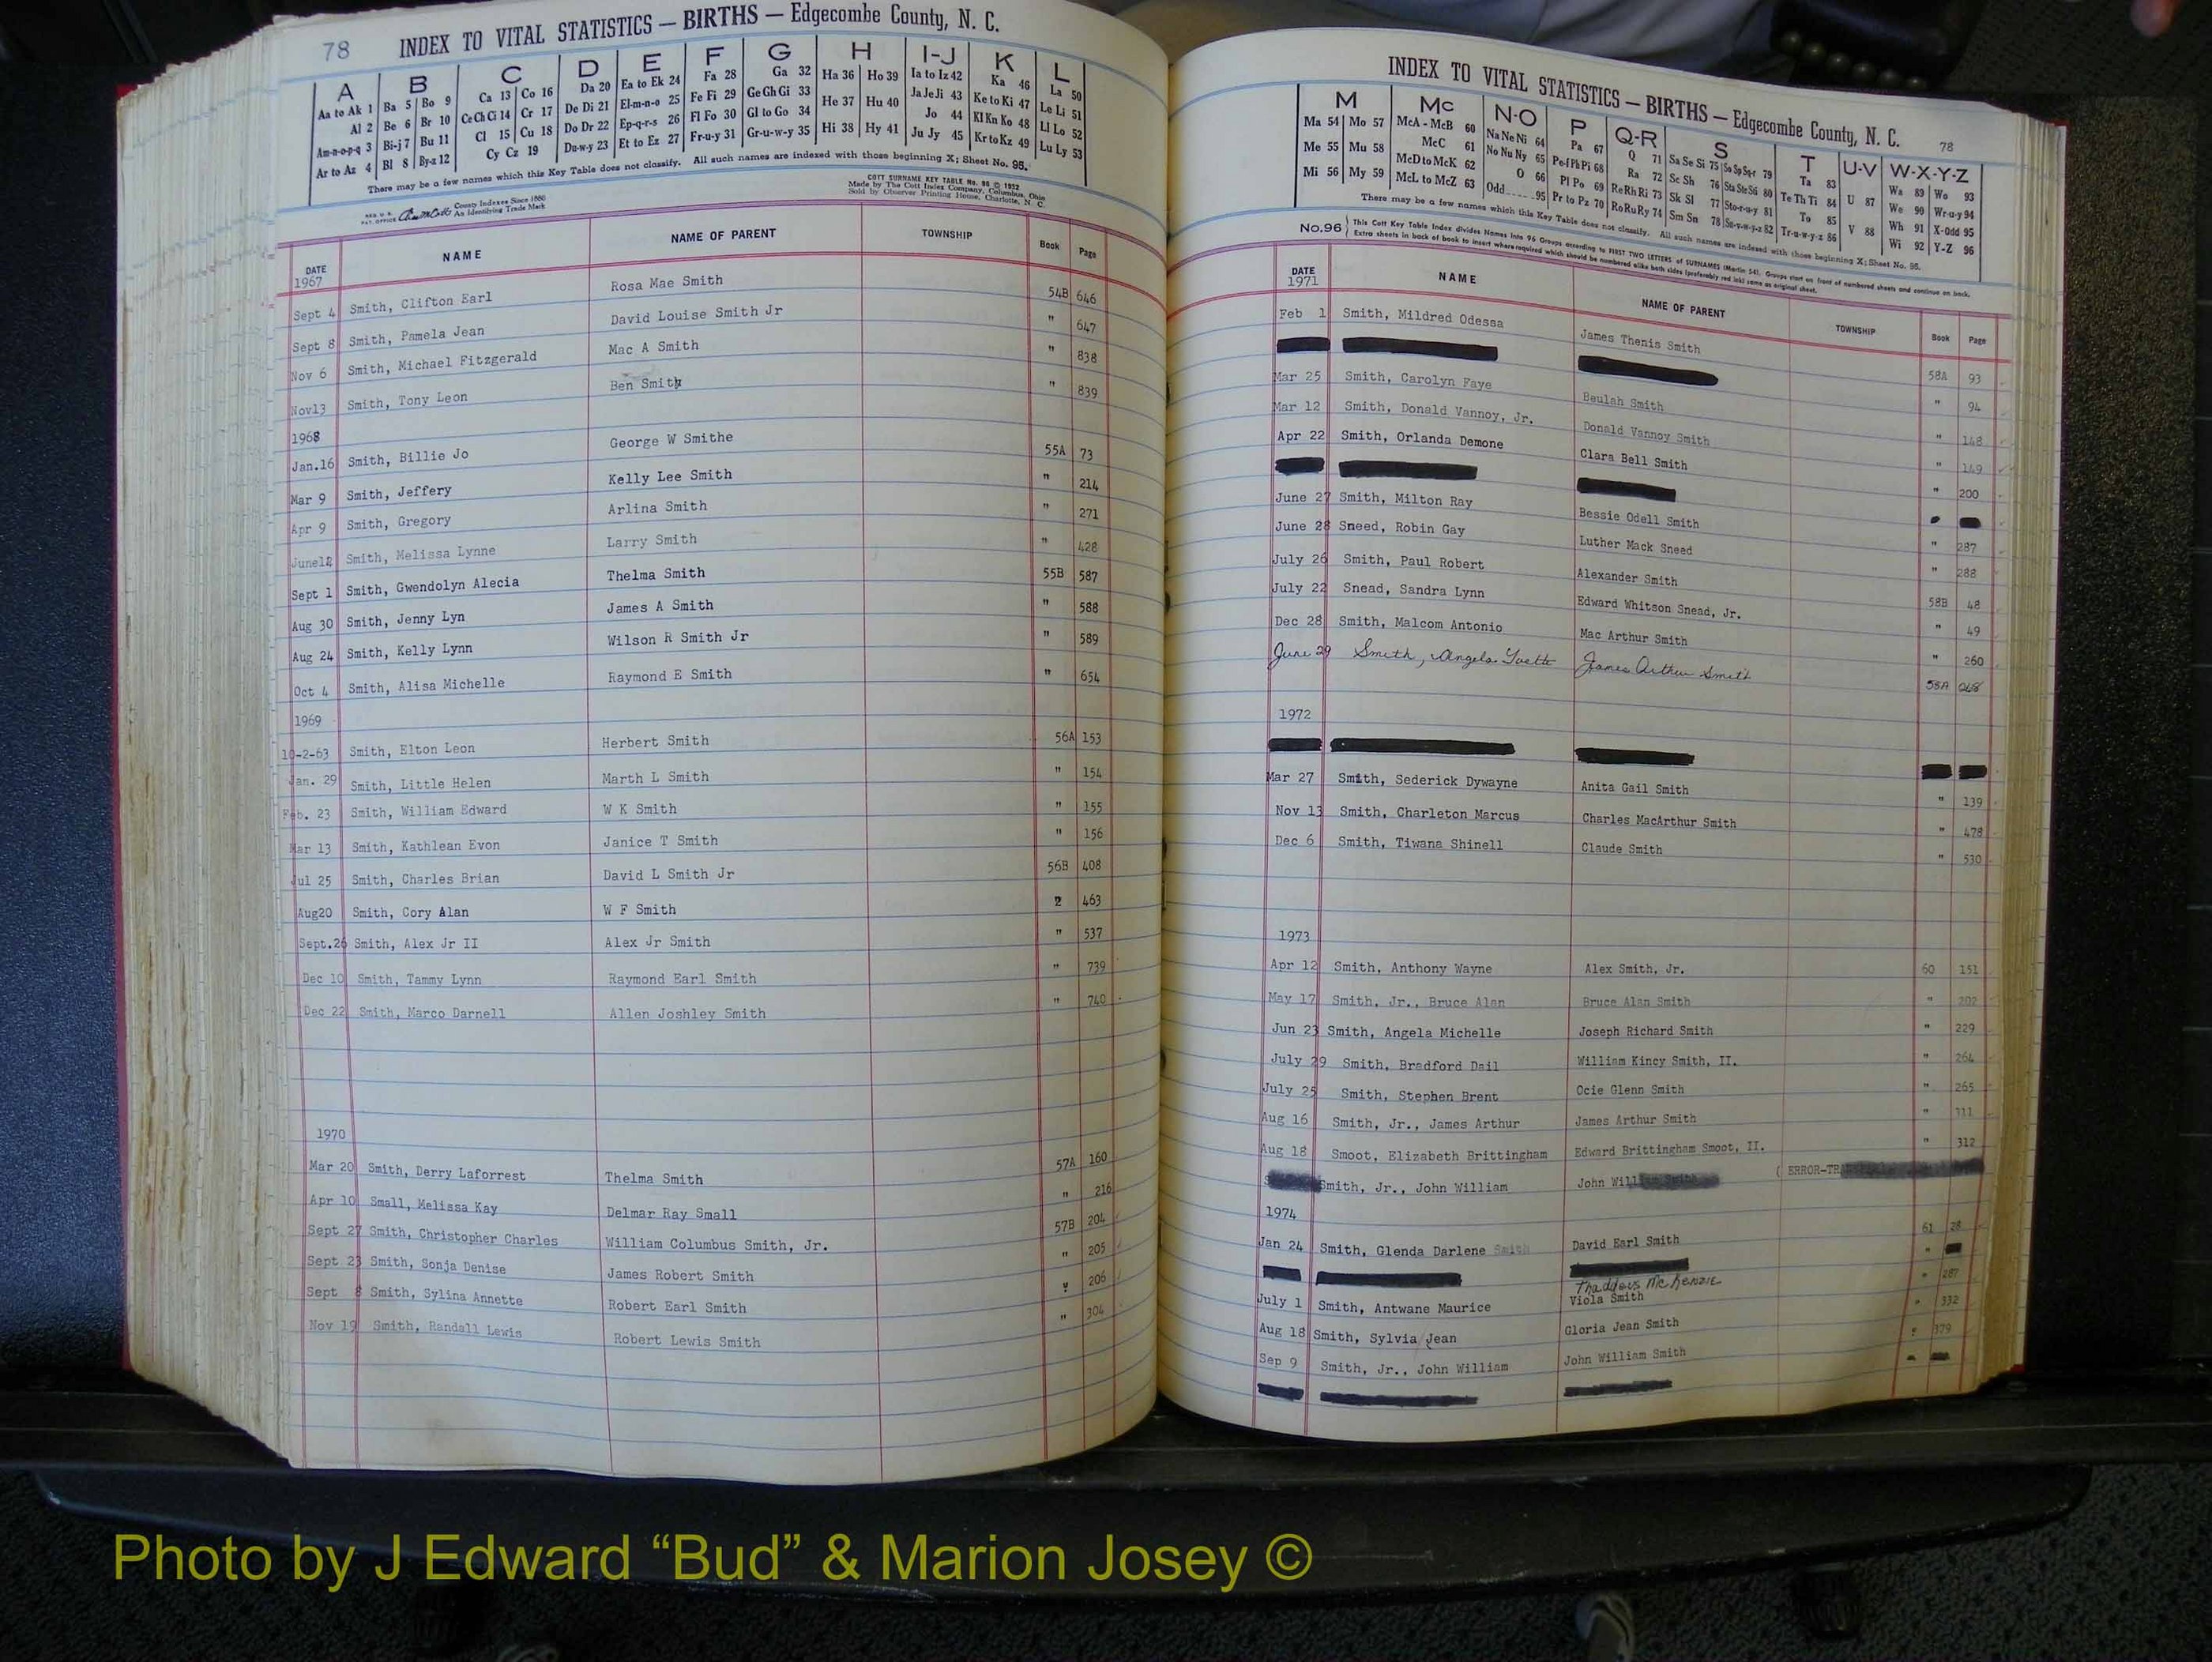 78 INDEX TO VITAL STATISTICS — BIRTHS — Edgecombe County, N. C.
A B C D E F G H I-J K L
Aa to Ak 1 Ba 5 Bo 9 Ca 13 Co 16 Da 20 Ea to Ek 24 Fa 28 Ga 32 Ha 36 Ho 39 Ia to Iz 42 Ka 46 La 50
Al 2 Be 6 Br 10 Ce Ch Ci 14 Cr 17 De Di 21 El-m-n-o 25 Fe Fi 29 Ge Gh Gi 33 He 37 Hu 40 Ja Je Ji 43 Ke to Ki 47 Le Li 51
Am-n-o-p-q 3 Bi-j 7 Bu 11 Cl 15 Cu 18 Do Dr 22 Ep-q-r-s 26 Fl Fo 30 Gl to Go 34 Hi 38 Hy 41 Jo 44 Kl Kn Ko 48 Ll Lo 52
Ar to Az 4 Bl 8 By-z 12 Cy Cz 19 Du-w-y 23 Et to Ez 27 Fr-u-y 31 Gr-u-w-y 35 Ju Jy 45 Kr to Kz 49 Lu Ly 53
There may be a few names which this Key Table does not classify. All such names are indexed with those beginning X; Sheet No. 95.
REG. U.S. PAT. OFFICE County Indexes Since 1880 An Identifying Trade Mark
COTT SURNAME KEY TABLE No. 96 © 1952
Made by The Cott Index Company, Columbus, Ohio
Sold by Observer Printing House, Charlotte, N. C.
DATE NAME NAME OF PARENT TOWNSHIP Book Page
1967
Sept 4 Smith, Clifton Earl Rosa Mae Smith 54B 646
Sept 8 Smith, Pamela Jean David Louise Smith Jr " 647
Nov 6 Smith, Michael Fitzgerald Mac A Smith " 838
Nov13 Smith, Tony Leon Ben Smith " 839
1968
Jan.16 Smith, Billie Jo George W Smithe 55A 73
Mar 9 Smith, Jeffery Kelly Lee Smith " 214
Apr 9 Smith, Gregory Arlina Smith " 271
June12 Smith, Melissa Lynne Larry Smith " 428
Sept 1 Smith, Gwendolyn Alecia Thelma Smith 55B 587
Aug 30 Smith, Jenny Lyn James A Smith " 588
Aug 24 Smith, Kelly Lynn Wilson R Smith Jr " 589
Oct 4 Smith, Alisa Michelle Raymond E Smith " 654
1969
10-2-63 Smith, Elton Leon Herbert Smith 56A 153
Jan. 29 Smith, Little Helen Marth L Smith " 154
Feb. 23 Smith, William Edward W K Smith " 155
Mar 13 Smith, Kathlean Evon Janice T Smith " 156
Jul 25 Smith, Charles Brian David L Smith Jr 56B 408
Aug20 Smith, Cory Alan W F Smith 2 463
Sept.26 Smith, Alex Jr II Alex Jr Smith " 537
Dec 10 Smith, Tammy Lynn Raymond Earl Smith " 739
Dec 22 Smith, Marco Darnell Allen Joshley Smith " 740
1970
Mar 20 Smith, Derry Laforrest Thelma Smith 57A 160
Apr 10 Small, Melissa Kay Delmar Ray Small " 216
Sept 27 Smith, Christopher Charles William Columbus Smith, Jr. 57B 204
Sept 23 Smith, Sonja Denise James Robert Smith " 205
Sept 8 Smith, Sylina Annette Robert Earl Smith " 206
Nov 19 Smith, Randall Lewis Robert Lewis Smith " 304
INDEX TO VITAL STATISTICS — BIRTHS — Edgecombe County, N. C. 78
M Mc N-O P Q-R S T U-V W-X-Y-Z
Ma 54 Mo 57 McA - McB 60 Na Ne Ni 64 Pa 67 Q 71 Sa Se Si 75 So Sp Sq-r 79 Ta 83 U 87 Wa 89 Wo 93
Me 55 Mu 58 McC 61 No Nu Ny 65 Pe-f Ph Pi 68 Ra 72 Sc Sh 76 Sta Ste Sti 80 Te Th Ti 84 We 90 Wr-u-y 94
Mi 56 My 59 McD to McK 62 O 66 Pl Po 69 Re Rh Ri 73 Sk Sl 77 Sto-r-u-y 81 To 85 V 88 Wh 91 X-Odd 95
McL to McZ 63 Odd 95 Pr to Pz 70 Ro Ru Ry 74 Sm Sn 78 Su-v-w-y-z 82 Tr-u-w-y-z 86 Wi 92 Y-Z 96
There may be a few names which this Key Table does not classify. All such names are indexed with those beginning X; Sheet No. 95.
No.96 This Cott Key Table Index divides Names into 96 Groups according to FIRST TWO LETTERS of SURNAMES (Martin 54). Groups start on front of numbered sheets and continue on back.
Extra sheets in back of book to insert where required which should be numbered alike both sides (preferably red ink) same as original sheet.
DATE NAME NAME OF PARENT TOWNSHIP Book Page
1971
Feb 1 Smith, Mildred Odessa James Thenis Smith 58A 93
" 94
Mar 25 Smith, Carolyn Faye Beulah Smith " 148
Mar 12 Smith, Donald Vannoy, Jr. Donald Vannoy Smith " 149
Apr 22 Smith, Orlanda Demone Clara Bell Smith " 200
June 27 Smith, Milton Ray Bessie Odell Smith " 287
June 28 Sneed, Robin Gay Luther Mack Snead " 288
July 26 Smith, Paul Robert Alexander Smith 58B 48
July 22 Snead, Sandra Lynn Edward Whitson Snead, Jr. " 49
Dec 28 Smith, Malcom Antonio Mac Arthur Smith " 260
June 29 Smith, Angela Yvette James Arthur Smith 58A 268
1972
Mar 27 Smith, Sederick Dywayne Anita Gail Smith " 139
Nov 13 Smith, Charleton Marcus Charles MacArthur Smith " 478
Dec 6 Smith, Tiwana Shinell Claude Smith " 530
1973
Apr 12 Smith, Anthony Wayne Alex Smith, Jr. 60 151
May 17 Smith, Jr., Bruce Alan Bruce Alan Smith " 202
Jun 23 Smith, Angela Michelle Joseph Richard Smith " 229
July 29 Smith, Bradford Dail William Kincy Smith, II. " 264
July 25 Smith, Stephen Brent Ocie Glenn Smith " 265
Aug 16 Smith, Jr., James Arthur James Arthur Smith " 311
Aug 18 Smoot, Elizabeth Brittingham Edward Brittingham Smoot, II. " 312
Smith, Jr., John William John William Smith ( ERROR-TR
1974
Jan 24 Smith, Glenda Darlene Smith David Earl Smith 61 28
"
Thaddous McKenzie
July 1 Smith, Antwane Maurice Viola Smith " 287
Aug 18 Smith, Sylvia Jean Gloria Jean Smith " 332
Sep 9 Smith, Jr., John William John William Smith " 379
Photo by J Edward “Bud” & Marion Josey ©